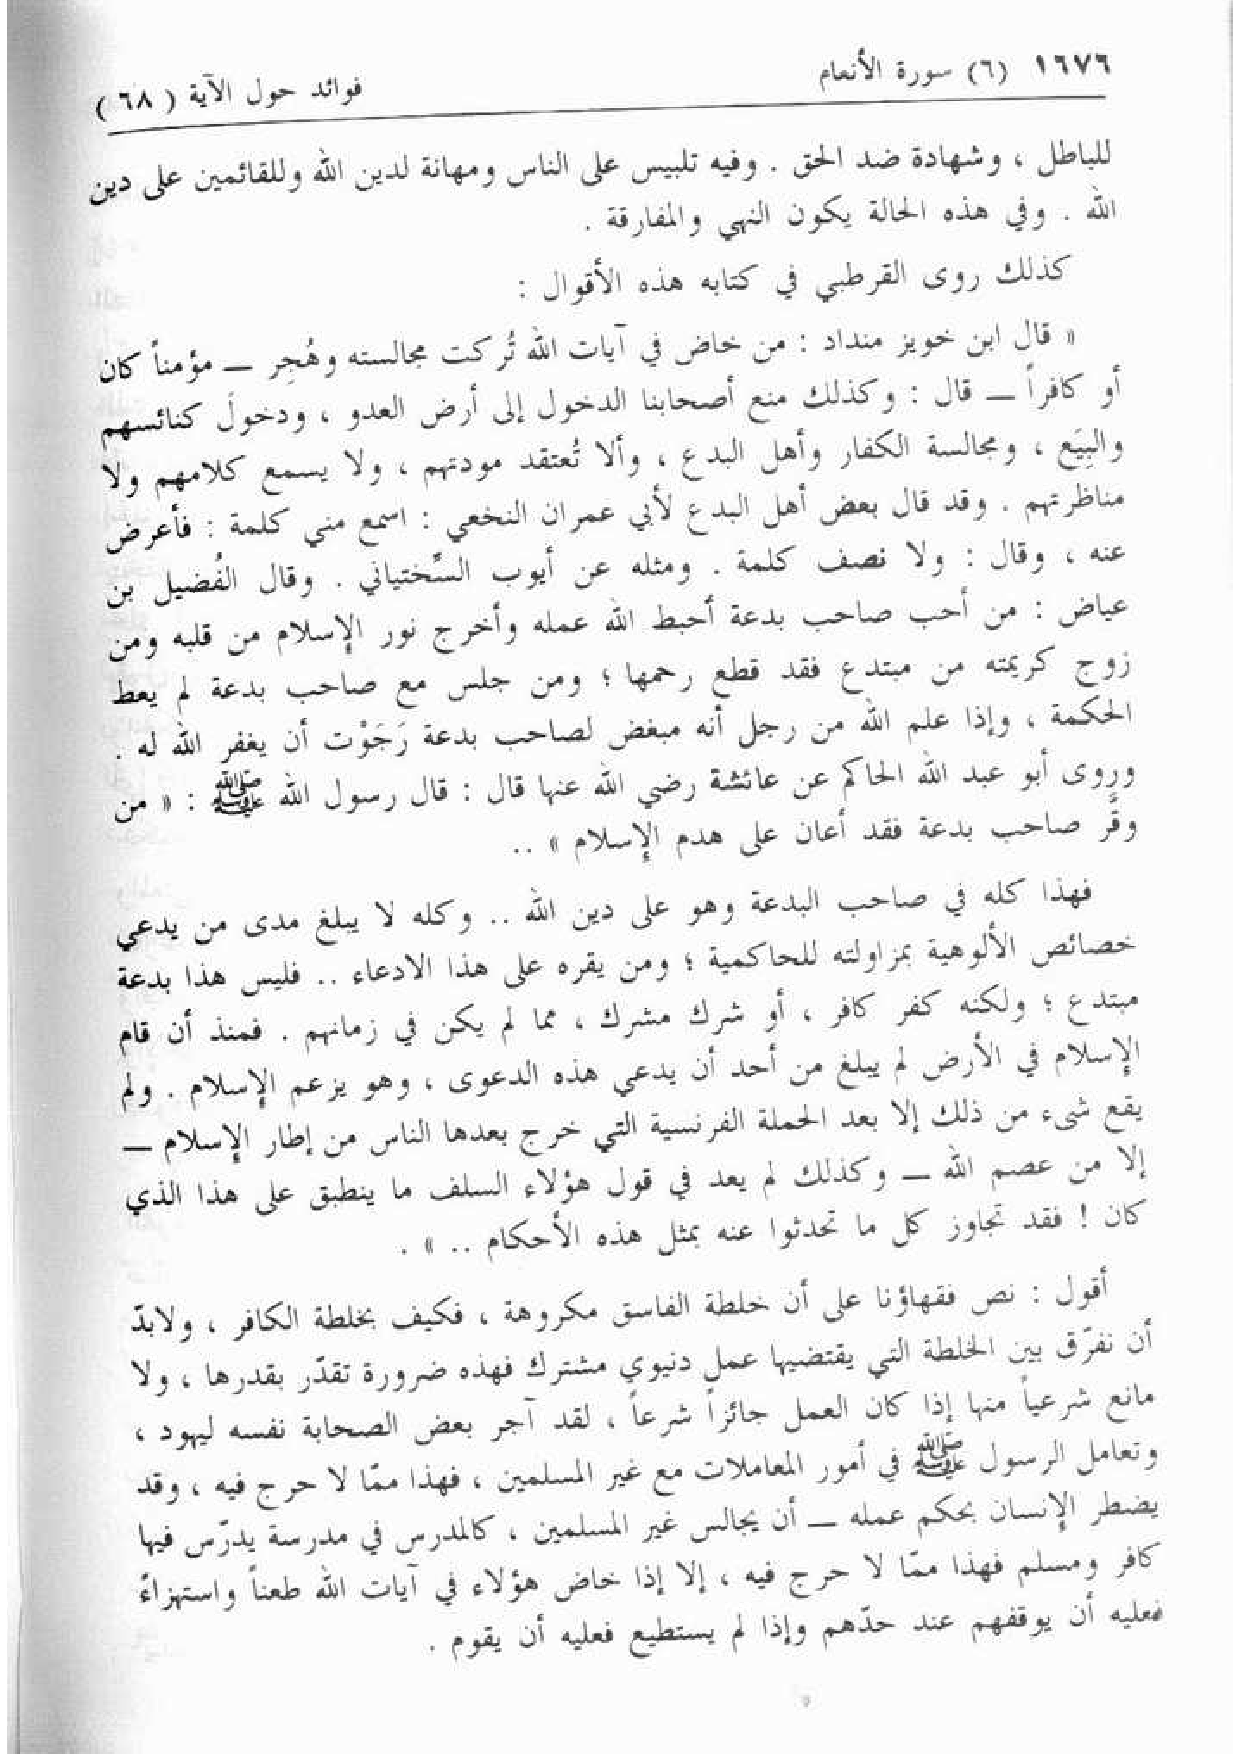 ١٦٧٦ (٦) سورة الأنعام فوائد حول الآية ( ٦٨ )
للباطل ، وشهادة ضد الحق . وفيه تلبيس على الناس ومهانة لدين الله وللقائمين على دين
الله . وفي هذه الحالة يكون النهي والمفارقة .
كذلك روى القرطبي في كتابه هذه الأقوال :
« قال ابن خويز منداد : من خاض في آيات الله تُركت مجالسته وهُجِر ــ مؤمناً كان
أو كافراً ــ قال : وكذلك منع أصحابنا الدخول إلى أرض العدو ، ودخولَ كنائسهم
والبِيَع ، ومجالسة الكفار وأهل البدع ، وألا تُعتقد مودتهم ، ولا يسمع كلامهم ولا
مناظرتهم . وقد قال بعض أهل البدع لأبي عمران النخعي : اسمع مني كلمة : فأعرض
عنه ، وقال : ولا نصف كلمة . ومثله عن أيوب السَّختياني . وقال الفُضيل بن
عياض : من أحب صاحب بدعة أحبط الله عمله وأخرج نور الإسلام من قلبه ومن
زوج كريمته من مبتدع فقد قطع رحمها ؛ ومن جلس مع صاحب بدعة لم يعط
الحكمة ، وإذا علم الله من رجل أنه مبغض لصاحب بدعة رَجَوْت أن يغفر الله له .
وروى أبو عبد الله الحاكم عن عائشة رضي الله عنها قال : قال رسول الله ﷺ : « من
وقَّر صاحب بدعة فقد أعان على هدم الإسلام » ..
فهذا كله في صاحب البدعة وهو على دين الله .. وكله لا يبلغ مدى من يدعي
خصائص الألوهية بمزاولته للحاكمية ؛ ومن يقره على هذا الادعاء .. فليس هذا بدعة
مبتدع ؛ ولكنه كفر كافر ، أو شرك مشرك ، مما لم يكن في زمانهم . فمنذ أن قام
الإسلام في الأرض لم يبلغ من أحد أن يدعي هذه الدعوى ، وهو يزعم الإسلام . ولم
يقع شيء من ذلك إلا بعد الحملة الفرنسية التي خرج بعدها الناس من إطار الإسلام ــ
إلا من عصم الله ــ وكذلك لم يعد في قول هؤلاء السلف ما ينطبق على هذا الذي
كان ! فقد تجاوز كل ما تحدثوا عنه بمثل هذه الأحكام .. » .
أقول : نص فقهاؤنا على أن خلطة الفاسق مكروهة ، فكيف بخلطة الكافر ، ولابدّ
أن نفرّق بين الخلطة التي يقتضيها عمل دنيوي مشترك فهذه ضرورة تقدّر بقدرها ، ولا
مانع شرعياً منها إذا كان العمل جائزاً شرعاً ، لقد آجر بعض الصحابة نفسه ليهود ،
وتعامل الرسول ﷺ في أمور المعاملات مع غير المسلمين ، فهذا ممّا لا حرج فيه ، وقد
يضطر الإنسان بحكم عمله ــ أن يجالس غير المسلمين ، كالمدرس في مدرسة يدرّس فيها
كافر ومسلم فهذا ممّا لا حرج فيه ، إلا إذا خاض هؤلاء في آيات الله طعناً واستهزاءً
فعليه أن يوقفهم عند حدّهم وإذا لم يستطيع فعليه أن يقوم .